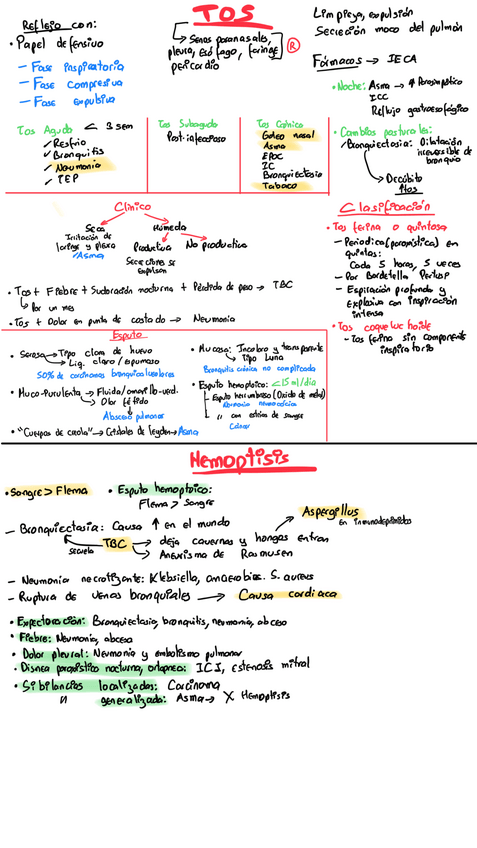 Reflejo con:
• Papel defensivo
- Fase inspiratoria
- Fase compresiva
- Fase expulsiva
TOS
Senos paranasales,
pleura, esófago, faringe
pericardio
R
Limpieza, expulsión
Secreción moco del pulmón
Fármacos → IECA
• Noche: Asma → ↑ Parasimpático
ICC
Reflujo gastroesofágico
• Cambios posturales:
Bronquiectasia: Dilatación
irreversible de
bronquio
Decúbito
↑tos
Tos Aguda < 3 sem
✓ Resfrio
✓ Bronquitis
✓ Neumonia
✓ TEP
Tos Subaguda
Post-infeccioso
Tos Crónica
Goteo nasal
Asma
EPOC
IC
Bronquiectasia
Tabaco
Clínico
Seca
Irritación de
laringe y pleura
Asma
Húmeda
Productiva
Secreciones se
expulsan
No productiva
• Tos + Fiebre + Sudoración nocturna + Pérdida de peso → TBC
Por un mes
• Tos + Dolor en punta de costado → Neumonia
Clasificación
• Tos ferina o quintosa
- Periodica (paroxística) en
quintas:
Cada 5 horas, 5 veces
- Por Bordetella Pertus
- Espiración profunda y
explosiva con inspiración
intensa
• Tos coqueluchoide
- Tos ferina sin componente
inspiratorio
Esputo
• Seroso → Tipo clara de huevo
Liq. claro / espumoso
50% de carcinomas bronquioloalveolares
• Muco-Purulenta → Fluido/amarillo-verd.
Olor fétido
Absceso pulmonar
• "Cuerpos de creola" → Cristales de leyden → Asma
• Mucoso: Incoloro y transparente
Tipo Luna
Bronquitis crónica no complicada
• Esputo hemoptoico: <15ml/día
- Esputo herrumbroso (Oxido de metal)
Neumonia neumocócica
- " con estrias de sangre
Cáncer
Hemoptisis
• Sangre > Flema
• Esputo hemoptoico:
Flema > Sangre
- Bronquiectasia: Causa ↑ en el mundo
secuela
TBC → deja cavernas y hongos entran
→ Aneurisma de Rasmusen
Aspergillus
En inmunodeprimidos
- Neumonia necrotizante: Klebsiella, anaerobios. S. aureus
- Ruptura de venas bronquiales → Causa cardiaca
• Expectoración: Bronquiectasia, bronquitis, neumonia, absceso
• Fiebre: Neumonia, absceso
• Dolor pleural: Neumonia y embolismo pulmonar
• Disnea paroxística nocturna, ortopnea: ICI, Estenosis mitral
• Sibilancias localizadas: Carcinoma
" generalizada: Asma → X Hemoptisis